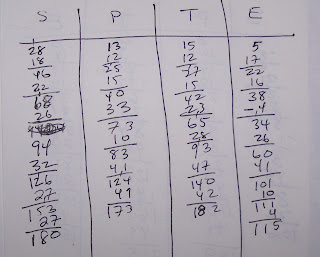 S P T E
28 13 15 5
18 12 12 17
46 25 27 22
22 15 15 16
68 40 42 38
26 33 23 -4
73 65 34
94 10 28 26
32 83 93 60
126 41 47 41
27 124 140 101
153 49 42 10
27 173 182 111
180 4
115